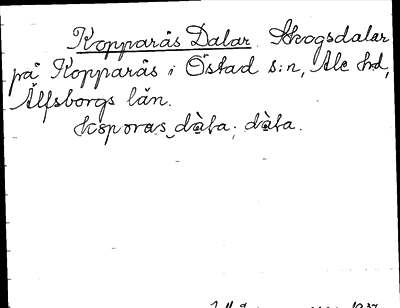 Kopparås Dalar Skogsdalar
på Kopparås i Östad s:n, Ale hd,
Älfsborgs län.
koporas dàla; dàla.